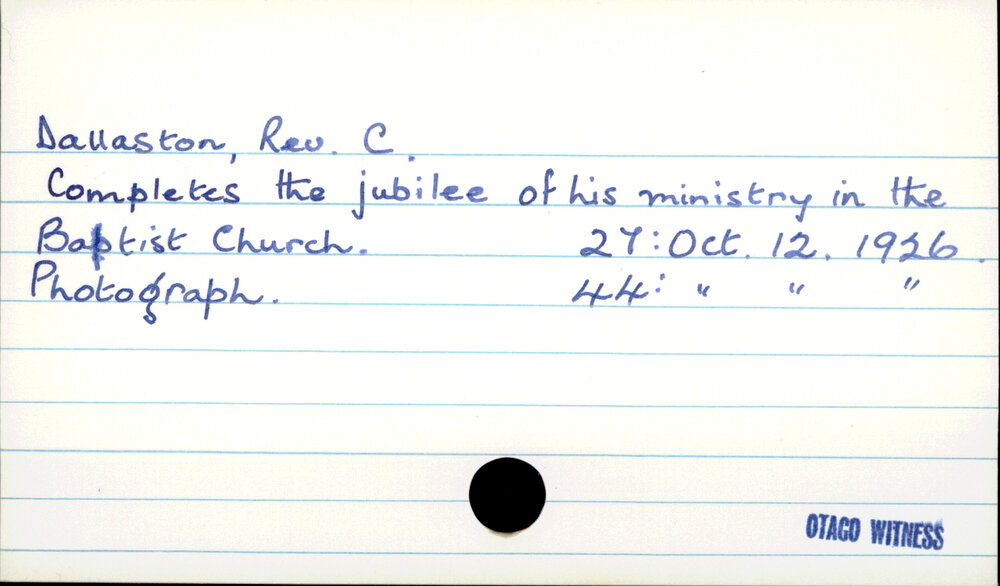 Dallaston, Rev. C.
Completes the jubilee of his ministry in the
Baptist Church. 27: Oct. 12. 1926.
Photograph. 44: " " "
OTAGO WITNESS